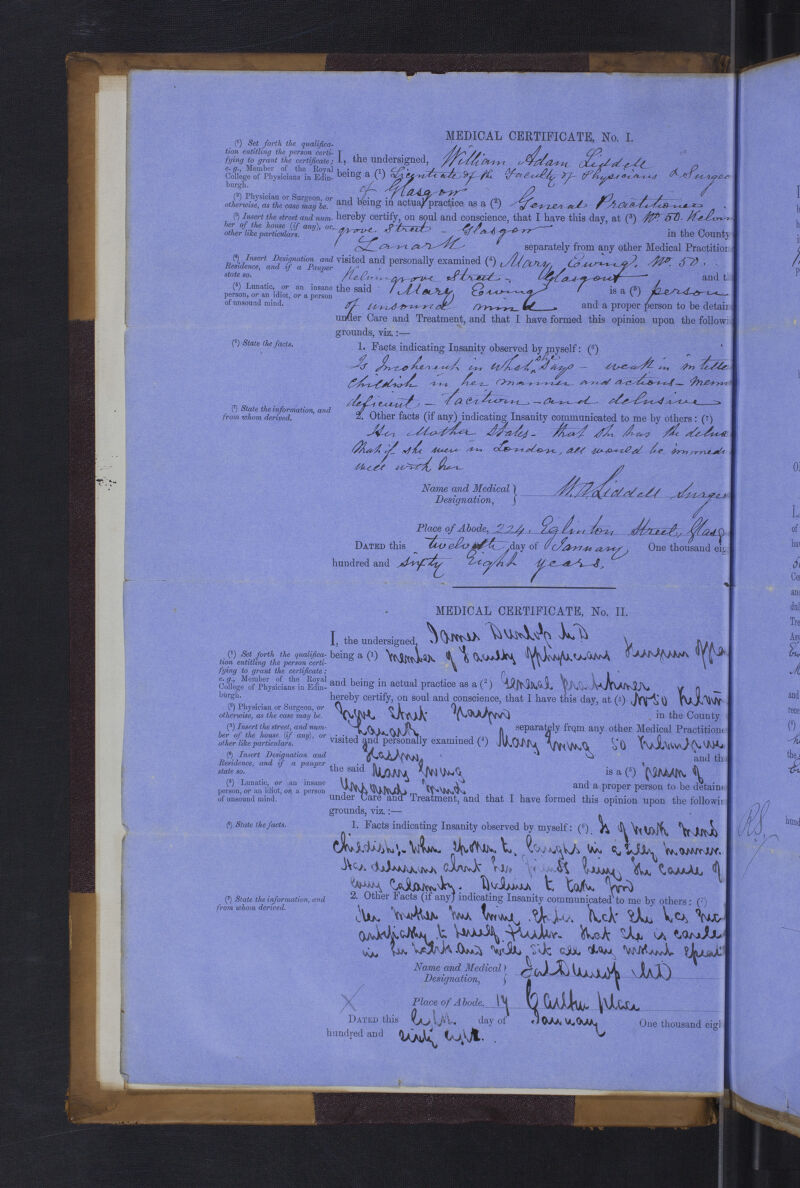 MEDICAL CERTIFICATE, No. I.
(¹) Set forth the qualifica-
tion entitling the person certi-
fying to grant the certificate;
e.g., Member of the Royal
College of Physicians in Edin-
burgh.
(²) Physician or Surgeon, or
otherwise, as the case may be.
(³) Insert the street and num-
ber of the house (if any), or
other like particulars.
(⁴) Insert Designation and
Residence, and if a Pauper
state so.
(⁵) Lunatic, or an insane
person, or an idiot, or a person
of unsound mind.
(⁶) State the facts.
(⁷) State the information, and
from whom derived.
I, the undersigned, William Adam Liddell
being a (¹) Licentiate of the Faculty of Physicians & Surgeo
of Glasgow
and being in actual practice as a (²) General Practitioner
hereby certify, on soul and conscience, that I have this day, at (³) No. 50. Kelvin
grove Street - Glasgow in the County
Lanark separately from any other Medical Practition
visited and personally examined (⁴) Mary Ewing. No. 50.
Kelvingrove Street - Glasgow and t
the said Mary Ewing is a (⁵) person
of unsound mind and a proper person to be detain
under Care and Treatment, and that I have formed this opinion upon the followi
grounds, viz.:—
1. Facts indicating Insanity observed by myself: (⁶)
Is Incoherent in what she says - weak in intelle
childish in her manner and actions - mem
deficient - taciturn - and delusive
2. Other facts (if any) indicating Insanity communicated to me by others: (⁷)
Her Mother States - that she has the delus
that if she were in London, all would be immedi
well with her
Name and Medical Designation, Liddell Surge
Place of Abode, 224. Eglinton Street, Glasg
DATED this twelveth day of January One thousand eig
hundred and sixty Eight years.
MEDICAL CERTIFICATE, No. II.
(¹) Set forth the qualifica-
tion entitling the person certi-
fying to grant the certificate;
e.g., Member of the Royal
College of Physicians in Edin-
burgh.
(²) Physician or Surgeon, or
otherwise, as the case may be.
(³) Insert the street, and num-
ber of the house (if any), or
other like particulars.
(⁴) Insert Designation and
Residence, and if a pauper
state so.
(⁵) Lunatic, or an insane
person, or an idiot, or a person
of unsound mind.
(⁶) State the facts.
(⁷) State the information, and
from whom derived.
I, the undersigned, James Dunlop MD
being a (¹) Member of Faculty of Physicians
and being in actual practice as a (²) General practitioner
hereby certify, on soul and conscience, that I have this day, at (³) No 50 Kelvin
Grove Street Glasgow in the County
Lanark separately from any other Medical Practitione
visited and personally examined (⁴) Mary Ewing 50 Kelvingrove
Glasgow and th
the said Mary Ewing is a (⁵) person of
Unsound mind and a proper person to be detaine
under Care and Treatment, and that I have formed this opinion upon the followin
grounds, viz.:—
1. Facts indicating Insanity observed by myself: (⁶). Is of weak mind
childish; when spoken to, laughs in a silly manner.
Has delusions about her friends being the cause of
Calamity. Declines to take food
2. Other Facts (if any) indicating Insanity communicated to me by others: (⁷)
Her mother Mrs Ewing that she has
antipathy to herself that she is carele
in her habits and will sit all day without speak
Name and Medical Designation, Dunlop MD
Place of Abode, 14 Carlton place
DATED this day of January One thousand eigh
hundred and sixty eight.
RS.